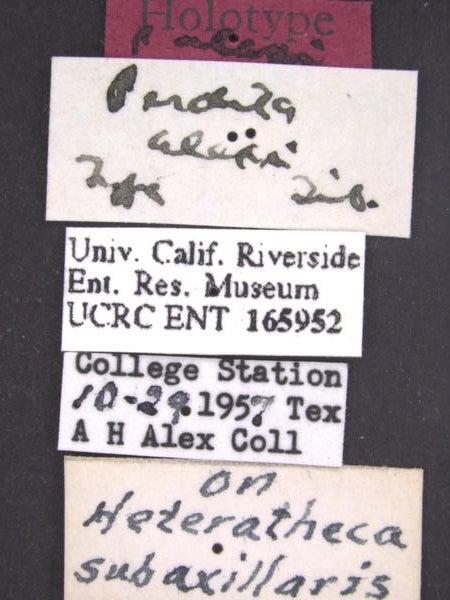 Holotype
P. alexi
Perdita
alexi
Type Timb.
Univ. Calif. Riverside
Ent. Res. Museum
UCRC ENT 165952
College Station
10-29 1957 Tex
A H Alex Coll
on
Heteratheca
subaxillaris